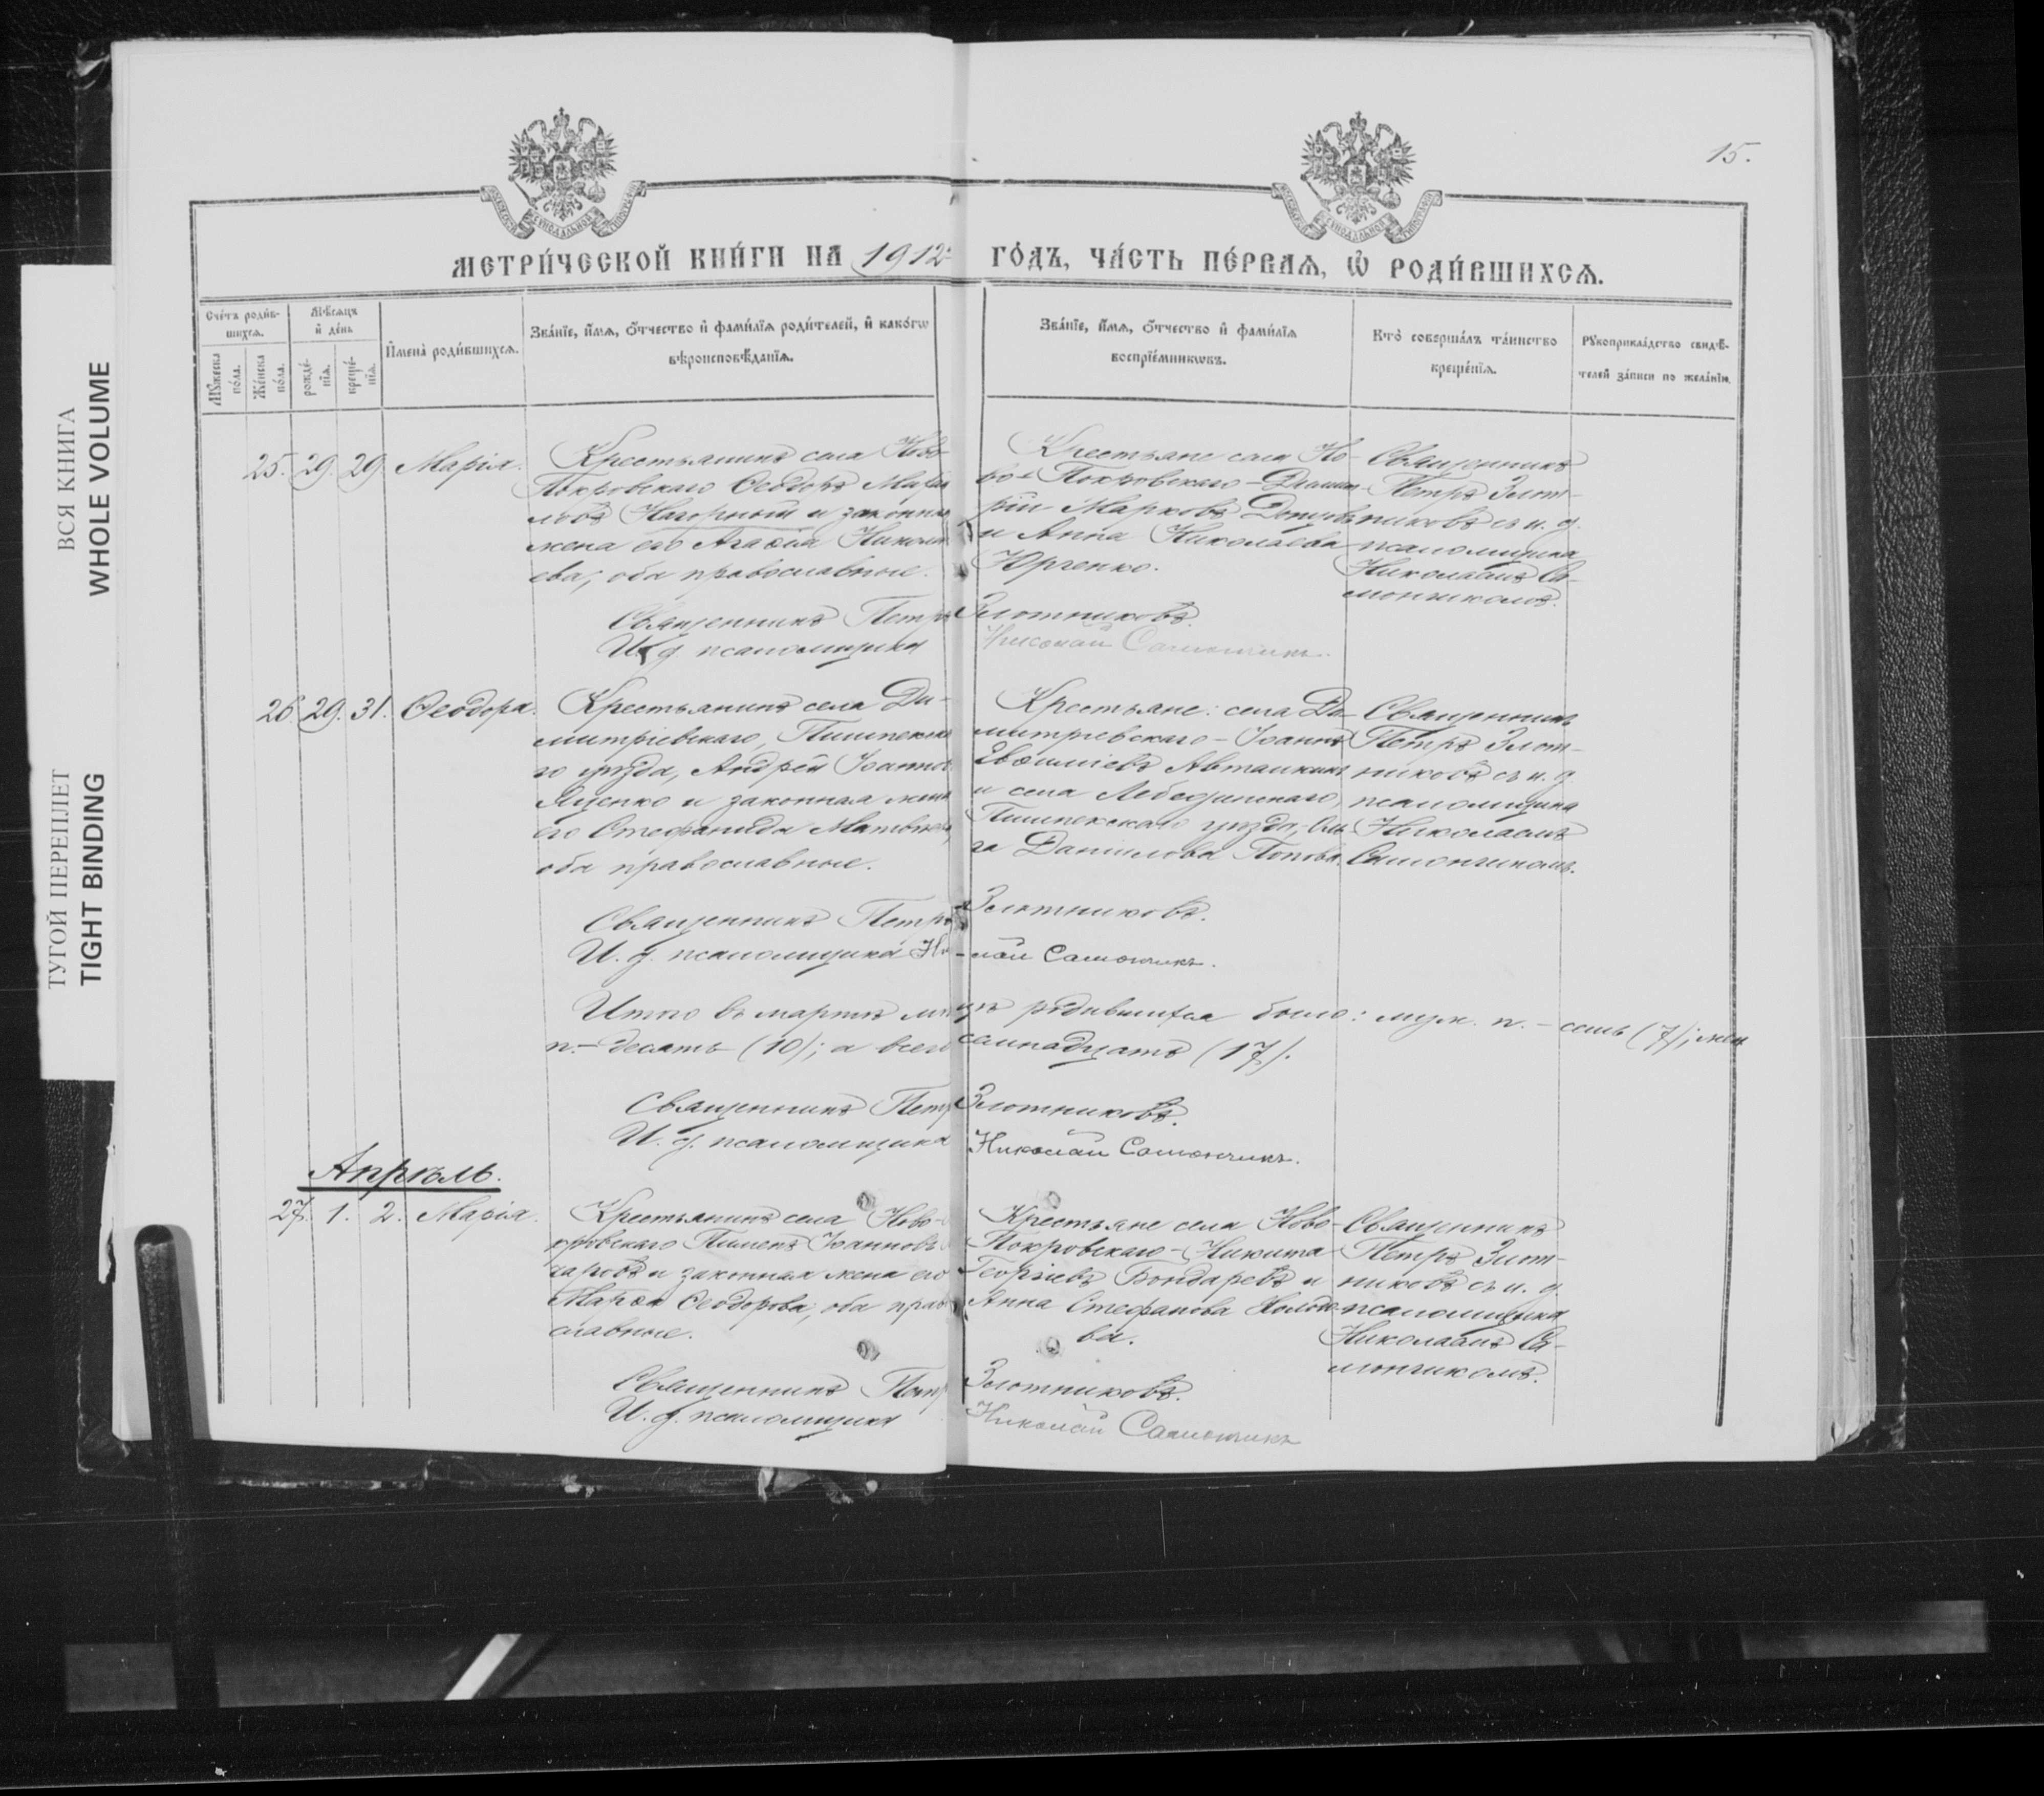 ВСЯ КНИГА
WHOLE VOLUME
ТУГОЙ ПЕРЕПЛЕТ
TIGHT BINDING
15.
МЕТРИ́ЧЕСКОЙ КНИ́ГИ НА 1912
ГО́ДЪ, ЧА́СТЬ ПЕ́РВАЯ, Ѽ РОДИ́ВШИХСЯ.
Сче́тъ роди́в-
шихся.
Мѣ́сяцъ
и де́нь
Му́жеска
по́ла.
Же́нска
по́ла.
рожде́-
нїя.
креще́-
нїя.
Имена̀ роди́вшихся.
Зва́нїе, и́мя, о́тчество и фами́лїя роди́телей, и како́гѡ
вѣроисповѣ́данїя.
Зва́нїе, и́мя, о́тчество и фами́лїя
воспрїе́мникѡвъ.
Кто̀ соверша́лъ та́инство
креще́нїя.
Рукоприкла́дство свидѣ́-
телей за́писи по жела́нїю.
25. 29. 29. Марія.
Крестьянинъ села Ново
Покровскаго Ѳеодоръ Михаи
ловъ Нагорный и законна
жена его Агаѳія Никола
ева; оба православные.
Крестьяне села Но-
во-Покровскаго - Димит
рій Марковъ
и Анна Николаева
Юрченко.
Священникъ
Петръ Злот-
никовъ съ и. д.
псаломщика
Николаемъ Са-
мончикомъ.
Священникъ Петръ Злотниковъ.
И. д. псаломщика Николай Самончикъ.
26. 29. 31. Ѳеодора.
Крестьянинъ села Ди-
митріевскаго, Пишпекска
го уѣзда, Андрей Іоаннов
Яценко и законная жена
его Стефанида Матвѣева,
оба православные.
Крестьяне: села Ди-
митріевскаго - Іоаннъ
Евѳиміевъ
и села Лебединскаго,
Пишпекскаго уѣзда, Оль
га Даніилова Попова.
Священникъ
Петръ Злот-
никовъ съ и. д.
псаломщика
Николаемъ
Самончикомъ.
Священникъ Петръ Злотниковъ.
И. д. псаломщика Ни-лай Самончикъ.
Итого въ мартѣ мѣсяцѣ родившихся было: муж. п. - семь (7); жен
п. - десять (10); а всего семнадцать (17).
Священникъ Петр Злотниковъ.
И. д. псаломщика Николай Самончикъ.
Апрѣль.
27. 1. 2. Марія.
Крестьянинъ села Ново-
кровскаго Пименъ Іоанновъ
харовъ и законная жена его
Марѳа Ѳеодорова; оба прав
славные.
Крестьяне села Ново-
Покровскаго - Никита
Георгіевъ Бондаревъ и
Анна Стефанова Холодо
ва.
Священникъ
Петръ Злот-
никовъ съ и. д.
псаломщика
Николаемъ Са-
мончикомъ.
Священникъ Петр Злотниковъ.
И. д. псаломщика Николай Самончикъ